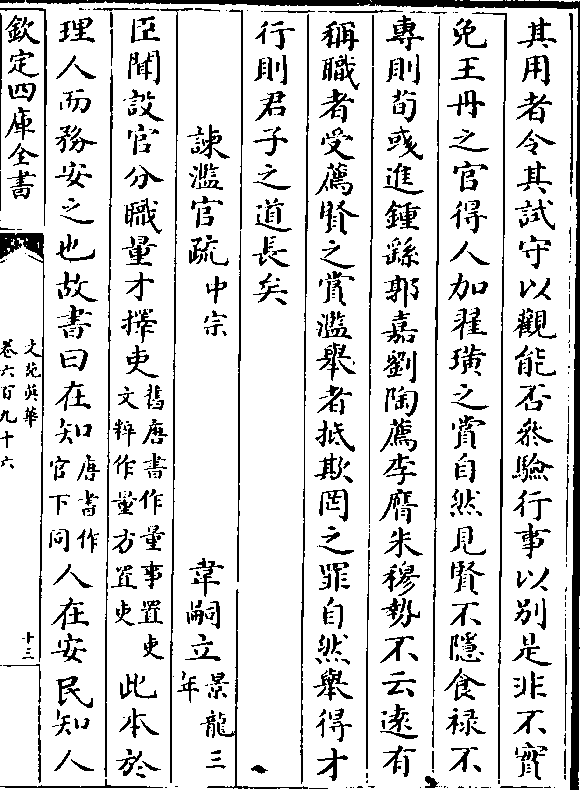 其用者令其試守以觀能否參驗行事以別是非不實
免王丹之官得人加翟璜之賞自然見賢不隱食祿不
專則荀彧進鍾繇郭嘉劉陶薦李膺朱穆勢不云逺有
稱職者受薦賢之賞濫舉者抵欺罔之罪自然舉得才
行則君子之道長矣
諫濫官疏中宗 韋嗣立景龍三年
臣聞設官分職量才擇吏舊唐書作量事置吏文粹作量方置吏此本於
理人而務安之也故書曰在知唐書作官下同人在安民知人
欽定四庫全書 文苑英華 卷六百九十六 十三